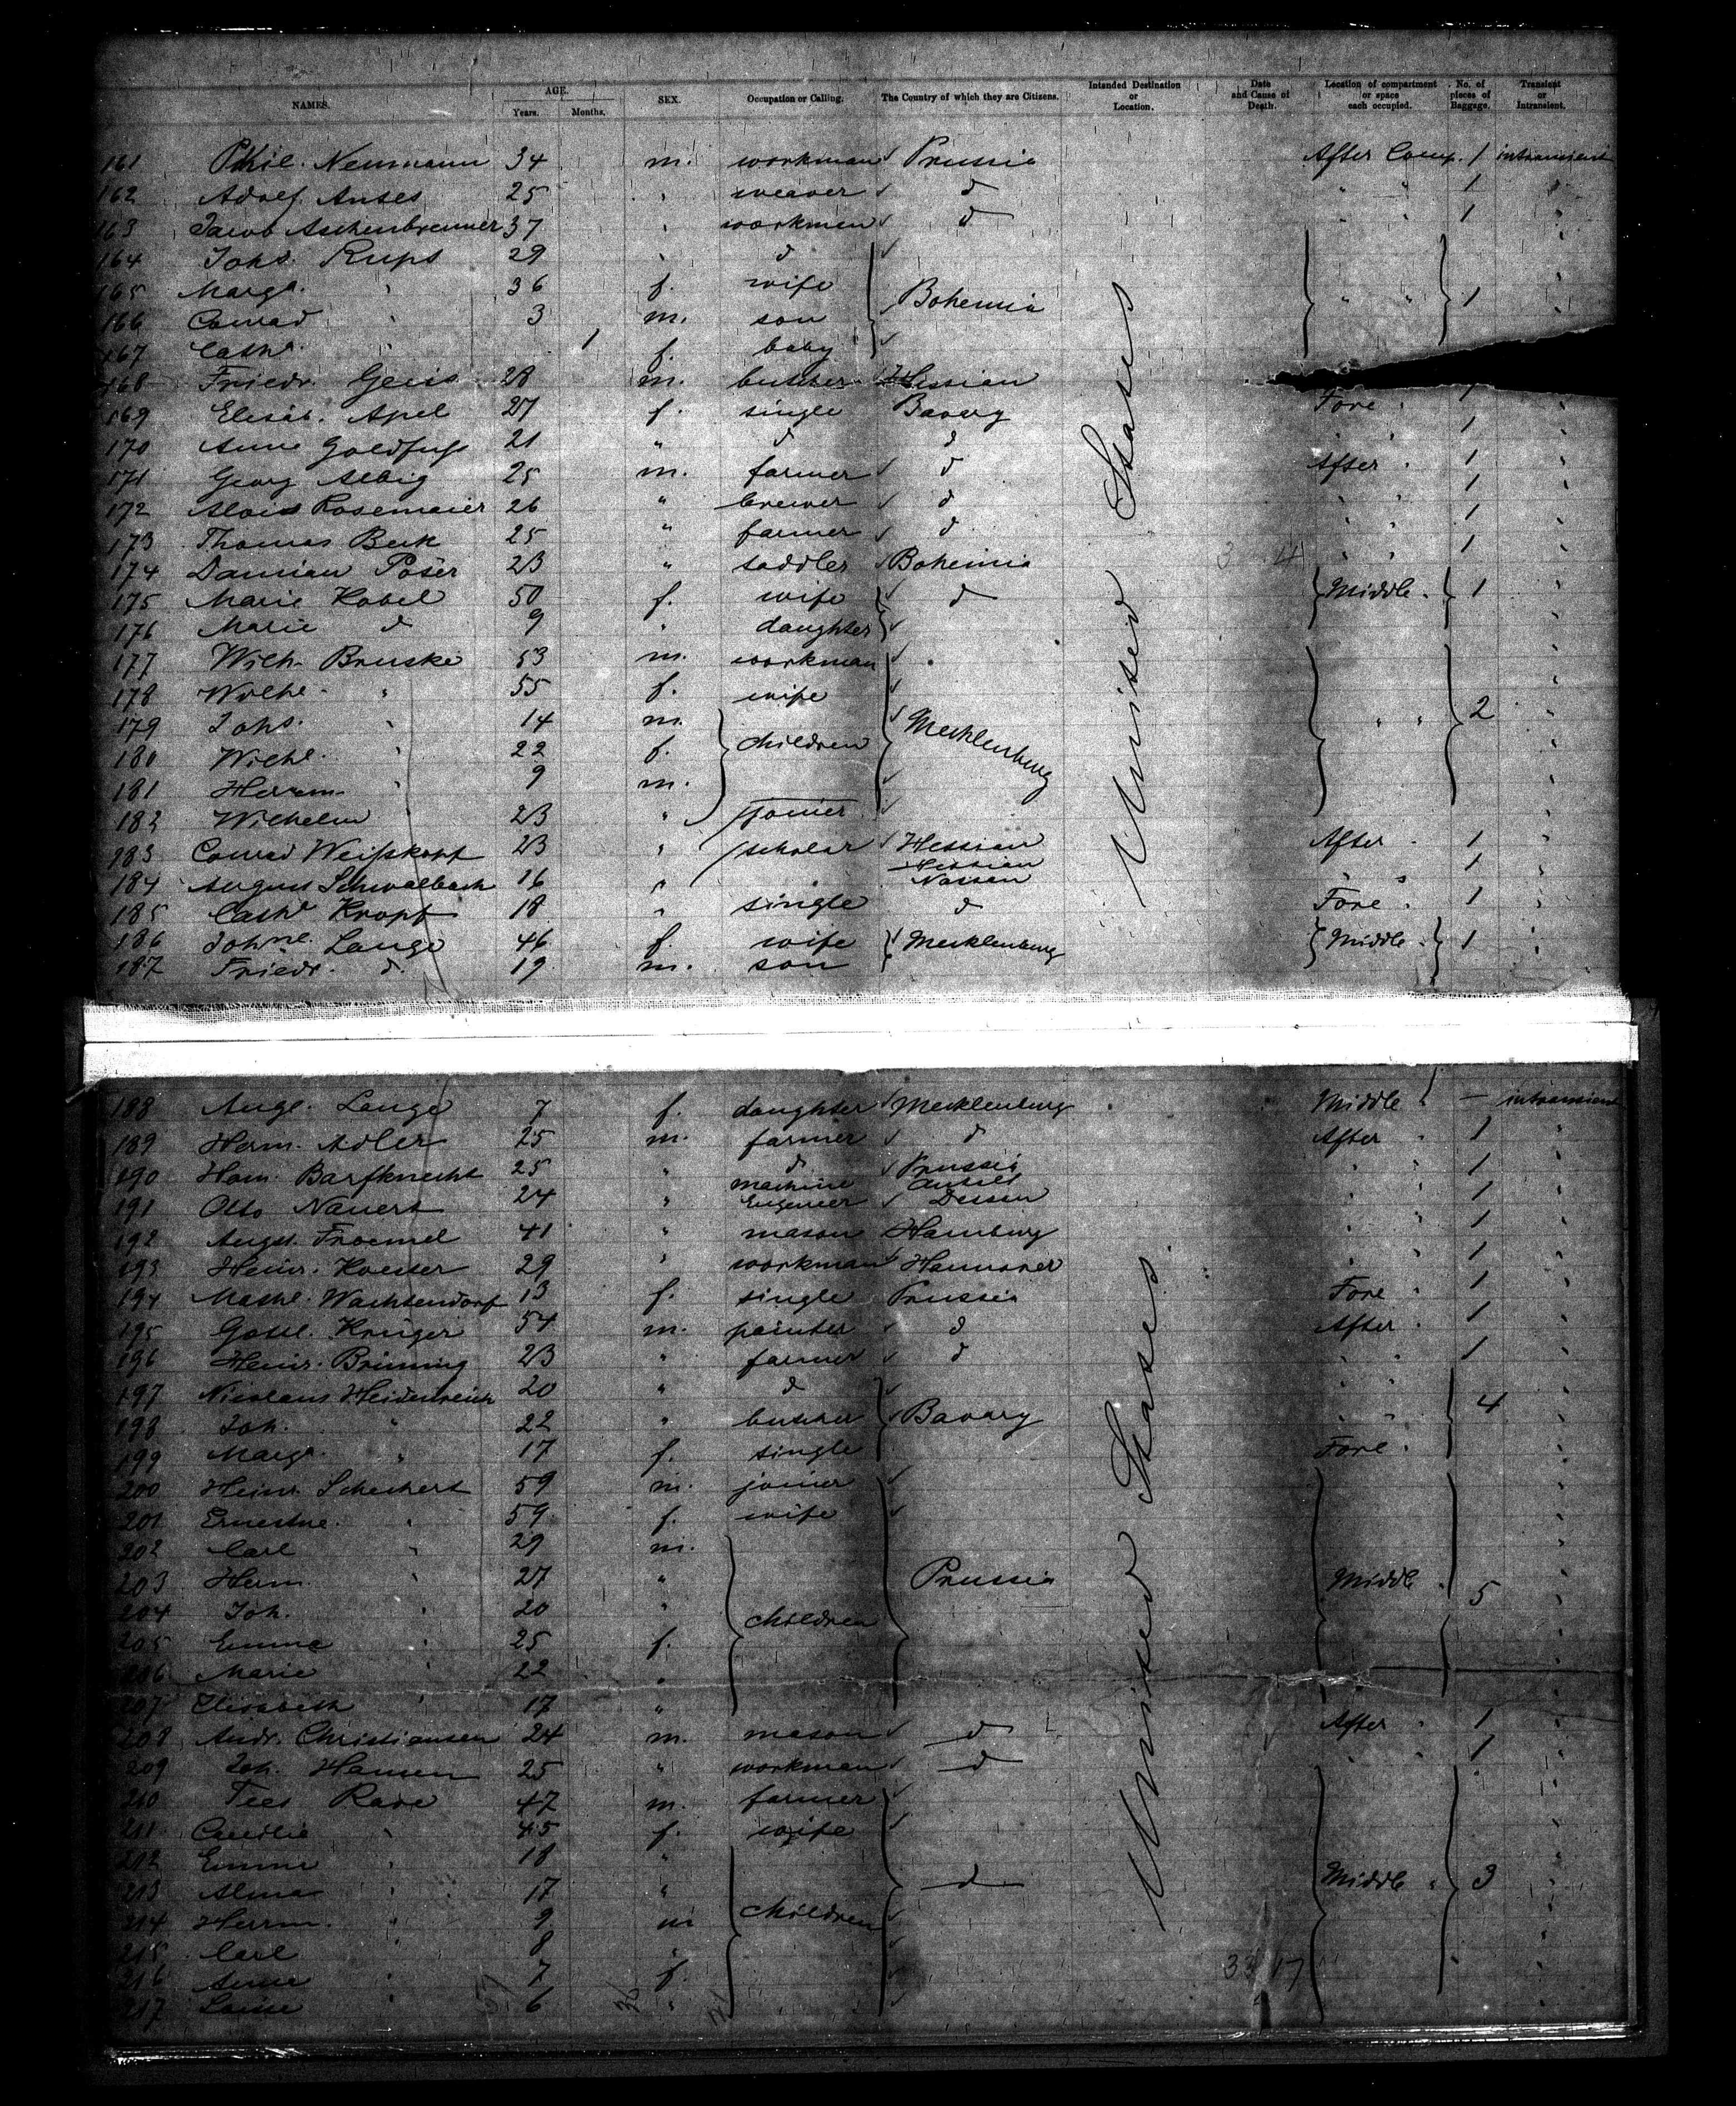 NAMES. AGE. Years. Months. SEX. Occupation or Calling. The Country of which they are Citizens. Intended Destination or Location. Date and Cause of Death. Location of compartment or space each occupied. No. of pieces of Baggage. Transient or Intransient.
161 Phil. Neumann 34 m. workman Prussia After Comp. 1 intransient
162 Adolf Antes 25 " weaver d " " 1 "
163 Jacob Aschenbrenner 37 " workman d " " 1 "
164 Johs. Rups 29 " d
165 Marga. " 36 f. wife Bohemia " " 1 "
166 Conrad " 3 m. son "
167 Cathe. " 1 f. baby
168 Friedr. Geiss 28 m. butcher Hessian
169 Elisab. Apel 27 f. single Bavary Fore " 1 "
170 Anna Goldfuß 21 " d d " " 1 "
171 Georg Albig 25 m. farmer d After " 1 "
172 Alois Rosemaier 26 " brewer d " " 1 "
173 Thomas Beck 25 " farmer d " " 1 "
174 Damian Poser 23 " saddler Bohemia 3 4 " " 1 "
175 Marie Kobel 50 f. wife d Middle " 1 "
176 Marie d 9 " daughter "
177 Wilh. Bruske 53 m. workman "
178 Wilhe. " 55 f. wife "
179 Johs. " 14 m. children Mecklenburg " " 2 "
180 Wilhe. " 22 f. "
181 Herrm. " 9 m. "
182 Wilhelm " 23 " joiner "
183 Conrad Weißkopf 23 " scholar Hessian After " 1 "
184 August Schwalbach 16 " Hessian Nassau " " 1 "
185 Cathe Kropf 18 " single d Fore " 1 "
186 Johne. Lange 46 f. wife Mecklenburg Middle " 1 "
187 Friedr. d. 19 m. son "
United States
188 Auge. Lange 7 f. daughter Mecklenburg Middle " — intransient
189 Herm. Adler 25 m. farmer d After " 1 "
190 Hem. Barfknecht 25 " d Prussia " " 1 "
191 Otto Nauert 24 " machine Engeneer Anhalt Dessau " " 1 "
192 Augst. Froemel 41 " mason Hamburg " " 1 "
193 Heinr. Koester 29 " workman Hannover " " 1 "
194 Mathl. Wachtendorf 13 f. single Prussia Fore " 1 "
195 Gottl. Krüger 54 m. painter d After " 1 "
196 Heinr. Brinning 23 " farmer d " " 1 "
197 Nicolaus Heidenreich 20 " d " " "
198 Joh. " 22 " butcher Bavary " " 4 "
199 Margr. " 17 f. single Fore " "
200 Heinr. Schechert 59 m. joiner "
201 Ernestne. " 59 f. wife "
202 Carl " 29 m. "
203 Herm. " 27 " Prussia Middle " 5 "
204 Joh. " 20 " children "
205 Emma " 25 f. "
206 Marie " 22 " "
207 Elisabeth " 17 " "
208 Andr. Christiansen 24 m. mason d After " 1 "
209 Joh. Hansen 25 " workman d " " 1 "
210 Rave 47 m. farmer "
211 Caecilie " 45 f. wife "
212 Emma " 18 " "
213 Alma " 17 " d Middle " 3 "
214 Herrm. " 9 m children "
215 Carl " 8 " "
216 Anna " 7 f. 33 17 "
217 Louise " 6 " "
United States